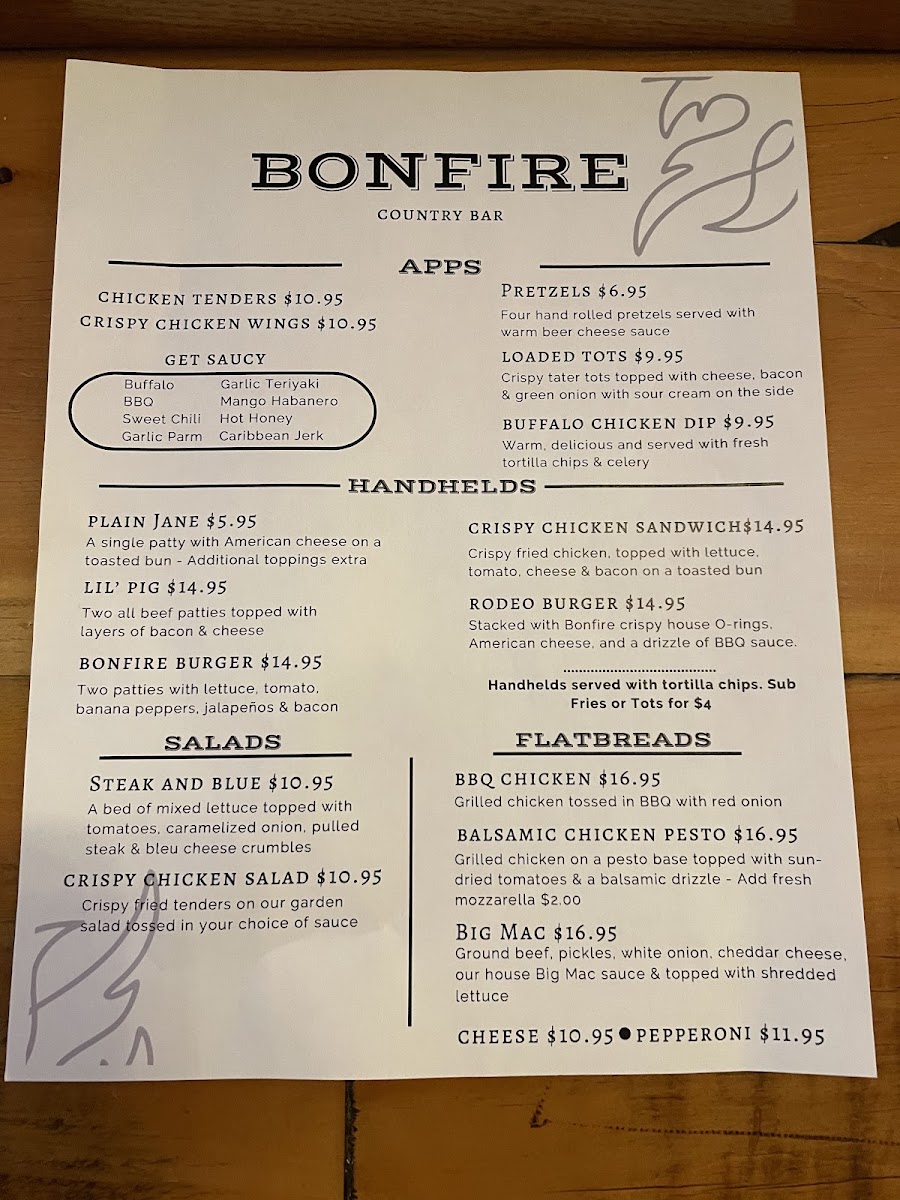 BONFIRE
COUNTRY BAR
APPS
CHICKEN TENDERS $10.95
CRISPY CHICKEN WINGS $10.95
GET SAUCY
Buffalo Garlic Teriyaki
BBQ Mango Habanero
Sweet Chili Hot Honey
Garlic Parm Caribbean Jerk
PRETZELS $6.95
Four hand rolled pretzels served with
warm beer cheese sauce
LOADED TOTS $9.95
Crispy tater tots topped with cheese, bacon
& green onion with sour cream on the side
BUFFALO CHICKEN DIP $9.95
Warm, delicious and served with fresh
tortilla chips & celery
HANDHELDS
PLAIN JANE $5.95
A single patty with American cheese on a
toasted bun - Additional toppings extra
LIL' PIG $14.95
Two all beef patties topped with
layers of bacon & cheese
BONFIRE BURGER $14.95
Two patties with lettuce, tomato,
banana peppers, jalapeños & bacon
CRISPY CHICKEN SANDWICH$14.95
Crispy fried chicken, topped with lettuce,
tomato, cheese & bacon on a toasted bun
RODEO BURGER $14.95
Stacked with Bonfire crispy house O-rings,
American cheese, and a drizzle of BBQ sauce.
Handhelds served with tortilla chips. Sub
Fries or Tots for $4
SALADS
STEAK AND BLUE $10.95
A bed of mixed lettuce topped with
tomatoes, caramelized onion, pulled
steak & bleu cheese crumbles
CRISPY CHICKEN SALAD $10.95
Crispy fried tenders on our garden
salad tossed in your choice of sauce
FLATBREADS
BBQ CHICKEN $16.95
Grilled chicken tossed in BBQ with red onion
BALSAMIC CHICKEN PESTO $16.95
Grilled chicken on a pesto base topped with sun-
dried tomatoes & a balsamic drizzle - Add fresh
mozzarella $2.00
BIG MAC $16.95
Ground beef, pickles, white onion, cheddar cheese,
our house Big Mac sauce & topped with shredded
lettuce
CHEESE $10.95 ● PEPPERONI $11.95